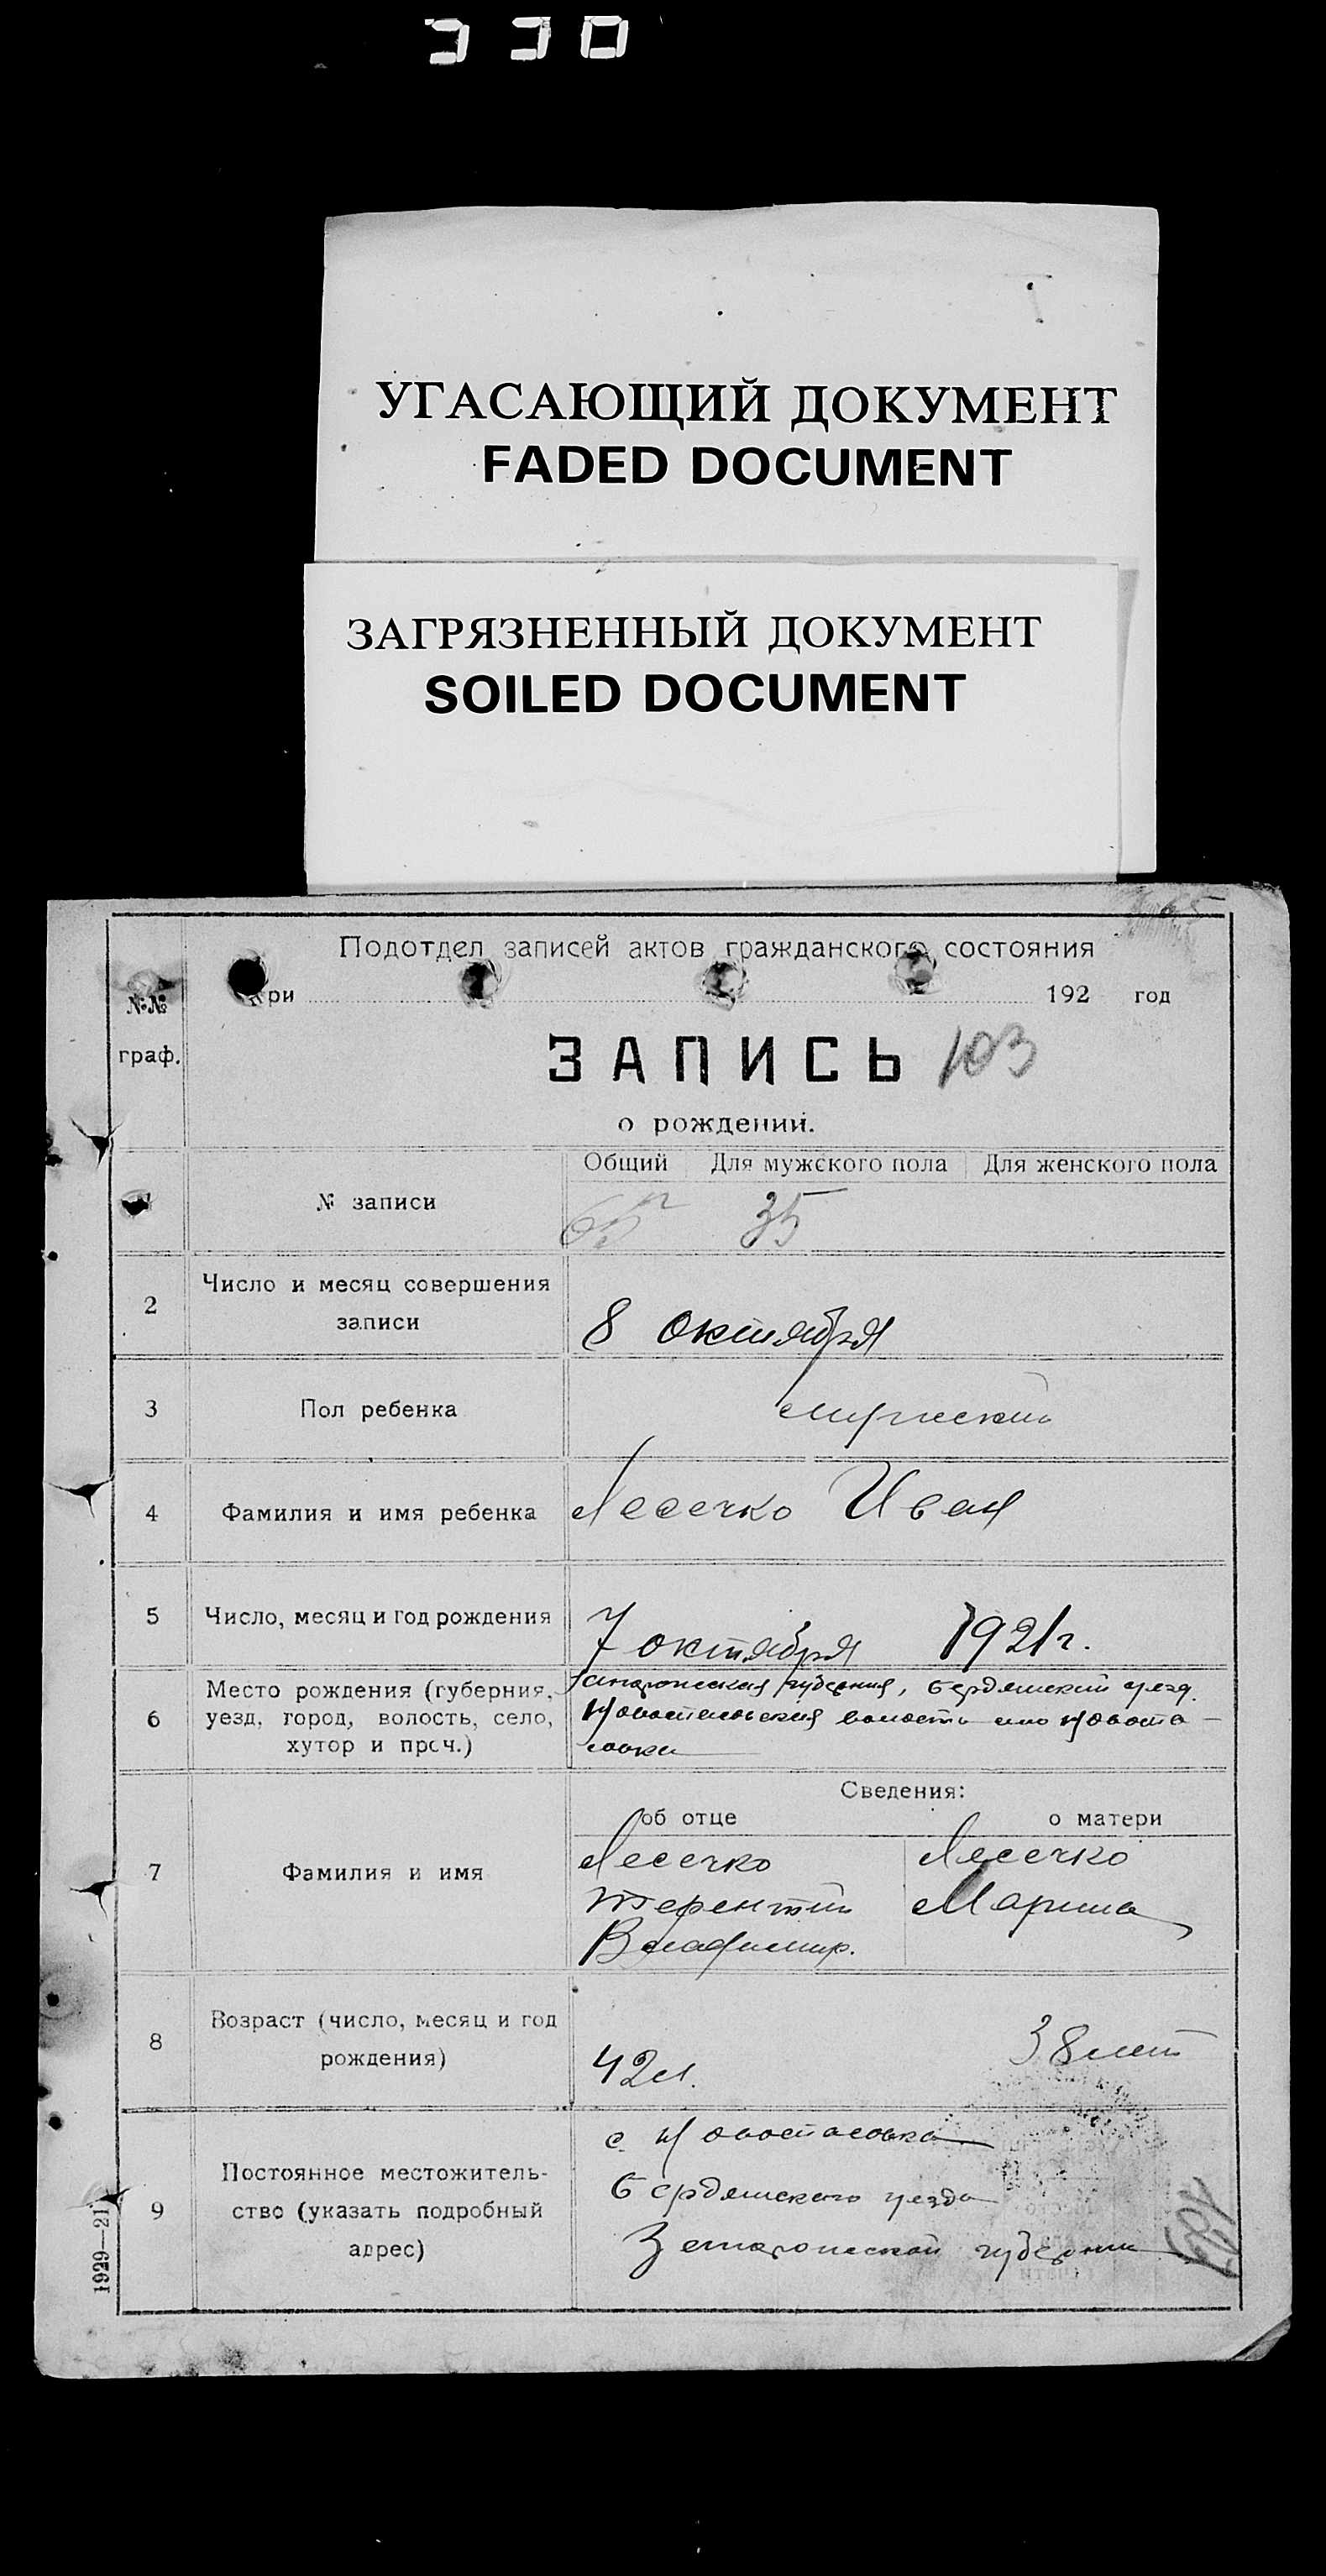 330
УГАСАЮЩИЙ ДОКУМЕНТ
FADED DOCUMENT
ЗАГРЯЗНЕННЫЙ ДОКУМЕНТ
SOILED DOCUMENT
Подотдел записей актов гражданского состояния
при 192 год
№№
граф.
ЗАПИСЬ 103
о рождении.
Общий Для мужского пола Для женского пола
№ записи
65 35
2 Число и месяц совершения
записи
8 октября
3 Пол ребенка
мужский
4 Фамилия и имя ребенка
Лесечко Иван
5 Число, месяц и год рождения
7 октября 1921 г.
6 Место рождения (губерния,
уезд, город, волость, село,
хутор и проч.)
губерния, Бердянский уезд
волость село Новоспа-
совка
Сведения:
об отце о матери
7 Фамилия и имя
Лесечко Лесечко
Терентий Марина
Владимир.
8 Возраст (число, месяц и год
рождения)
42 л. 38 лет
9 Постоянное местожитель-
ство (указать подробный
адрес)
с. Новоспасовка
Бердянского уезда
губернии
1929—21